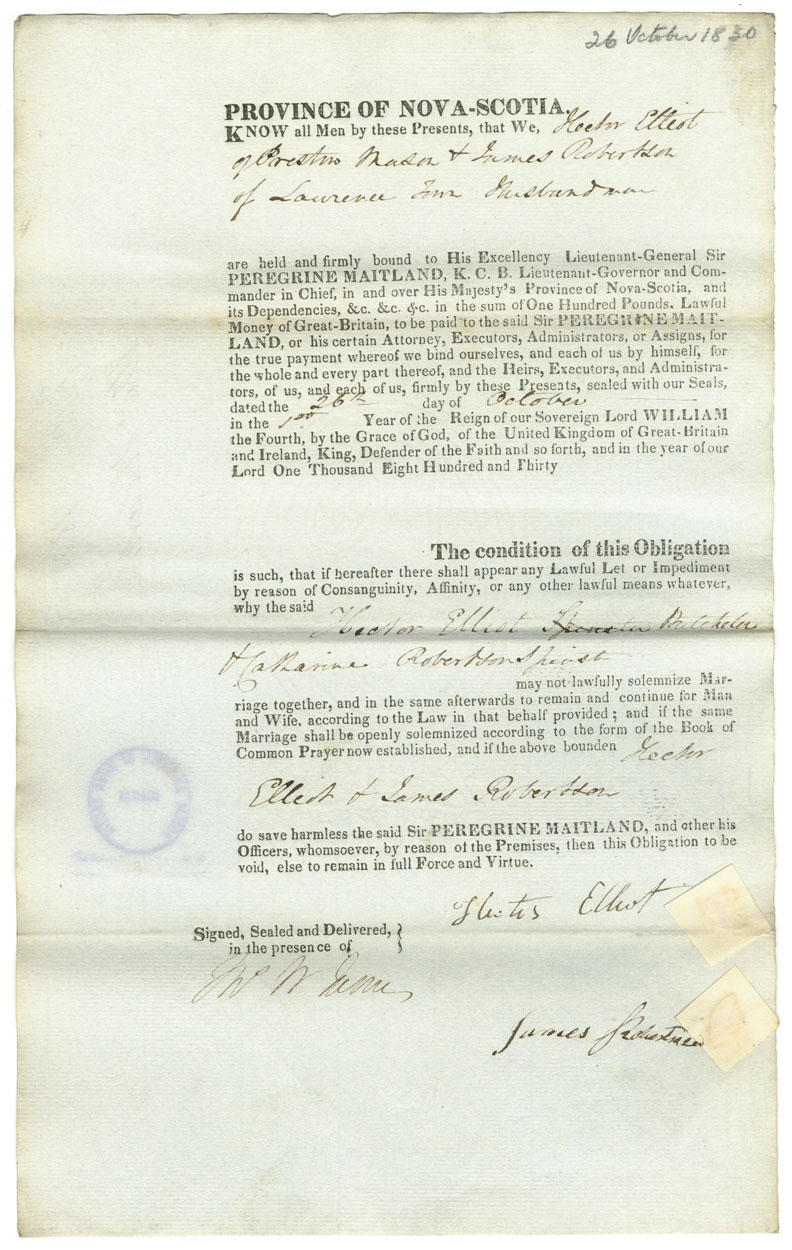 26 October 1830
PROVINCE OF NOVA-SCOTIA.
KNOW all Men by these Presents, that We, Hector Elliot
of Preston Mason & James Robertson
of Lawrence Town Husbandman
are held and firmly bound to His Excellency Lieutenant-General Sir
PEREGRINE MAITLAND, K. C. B. Lieutenant-Governor and Com-
mander in Chief, in and over His Majesty's Province of Nova-Scotia, and
its Dependencies, &c. &c. &c. in the sum of One Hundred Pounds. Lawful
Money of Great-Britain, to be paid to the said Sir PEREGRINE MAIT-
LAND, or his certain Attorney, Executors, Administrators, or Assigns, for
the true payment whereof we bind ourselves, and each of us by himself, for
the whole and every part thereof, and the Heirs, Executors, and Administra-
tors, of us, and each of us, firmly by these Presents, sealed with our Seals,
dated the 26th day of October
in the Year of the Reign of our Sovereign Lord WILLIAM
the Fourth, by the Grace of God, of the United Kingdom of Great-Britain
and Ireland, King, Defender of the Faith and so forth, and in the year of our
Lord One Thousand Eight Hundred and Thirty
The condition of this Obligation
is such, that if hereafter there shall appear any Lawful Let or Impediment
by reason of Consanguinity, Affinity, or any other lawful means whatever,
why the said
Hector Elliot Spinster Batchelor
& Catharine Robertson Spinst
may not lawfully solemnize Mar-
riage together, and in the same afterwards to remain and continue for Man
and Wife, according to the Law in that behalf provided; and if the same
Marriage shall be openly solemnized according to the form of the Book of
Common Prayer now established, and if the above bounden Hector
Elliot & James Robertson
do save harmless the said Sir PEREGRINE MAITLAND, and other his
Officers, whomsoever, by reason of the Premises, then this Obligation to be
void, else to remain in full Force and Virtue.
Elliot
Signed, Sealed and Delivered,
in the presence of
James Robertson